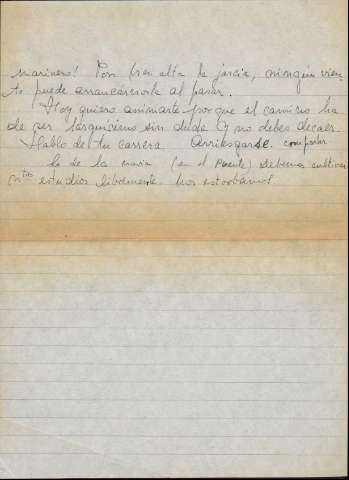 marinero! Pon bien alta la jarcia, ningún vien
to puede arrancárnosla al pasar.
Hoy quiero animarte porque el camino ha
de ser larguísimo sin duda y no debes decaer.
Hablo de tu carrera. Arriesgarse. comprar
lo de la (en el puente) Debemos cultivar
ntros estudios libremente. Nos estorbamos!